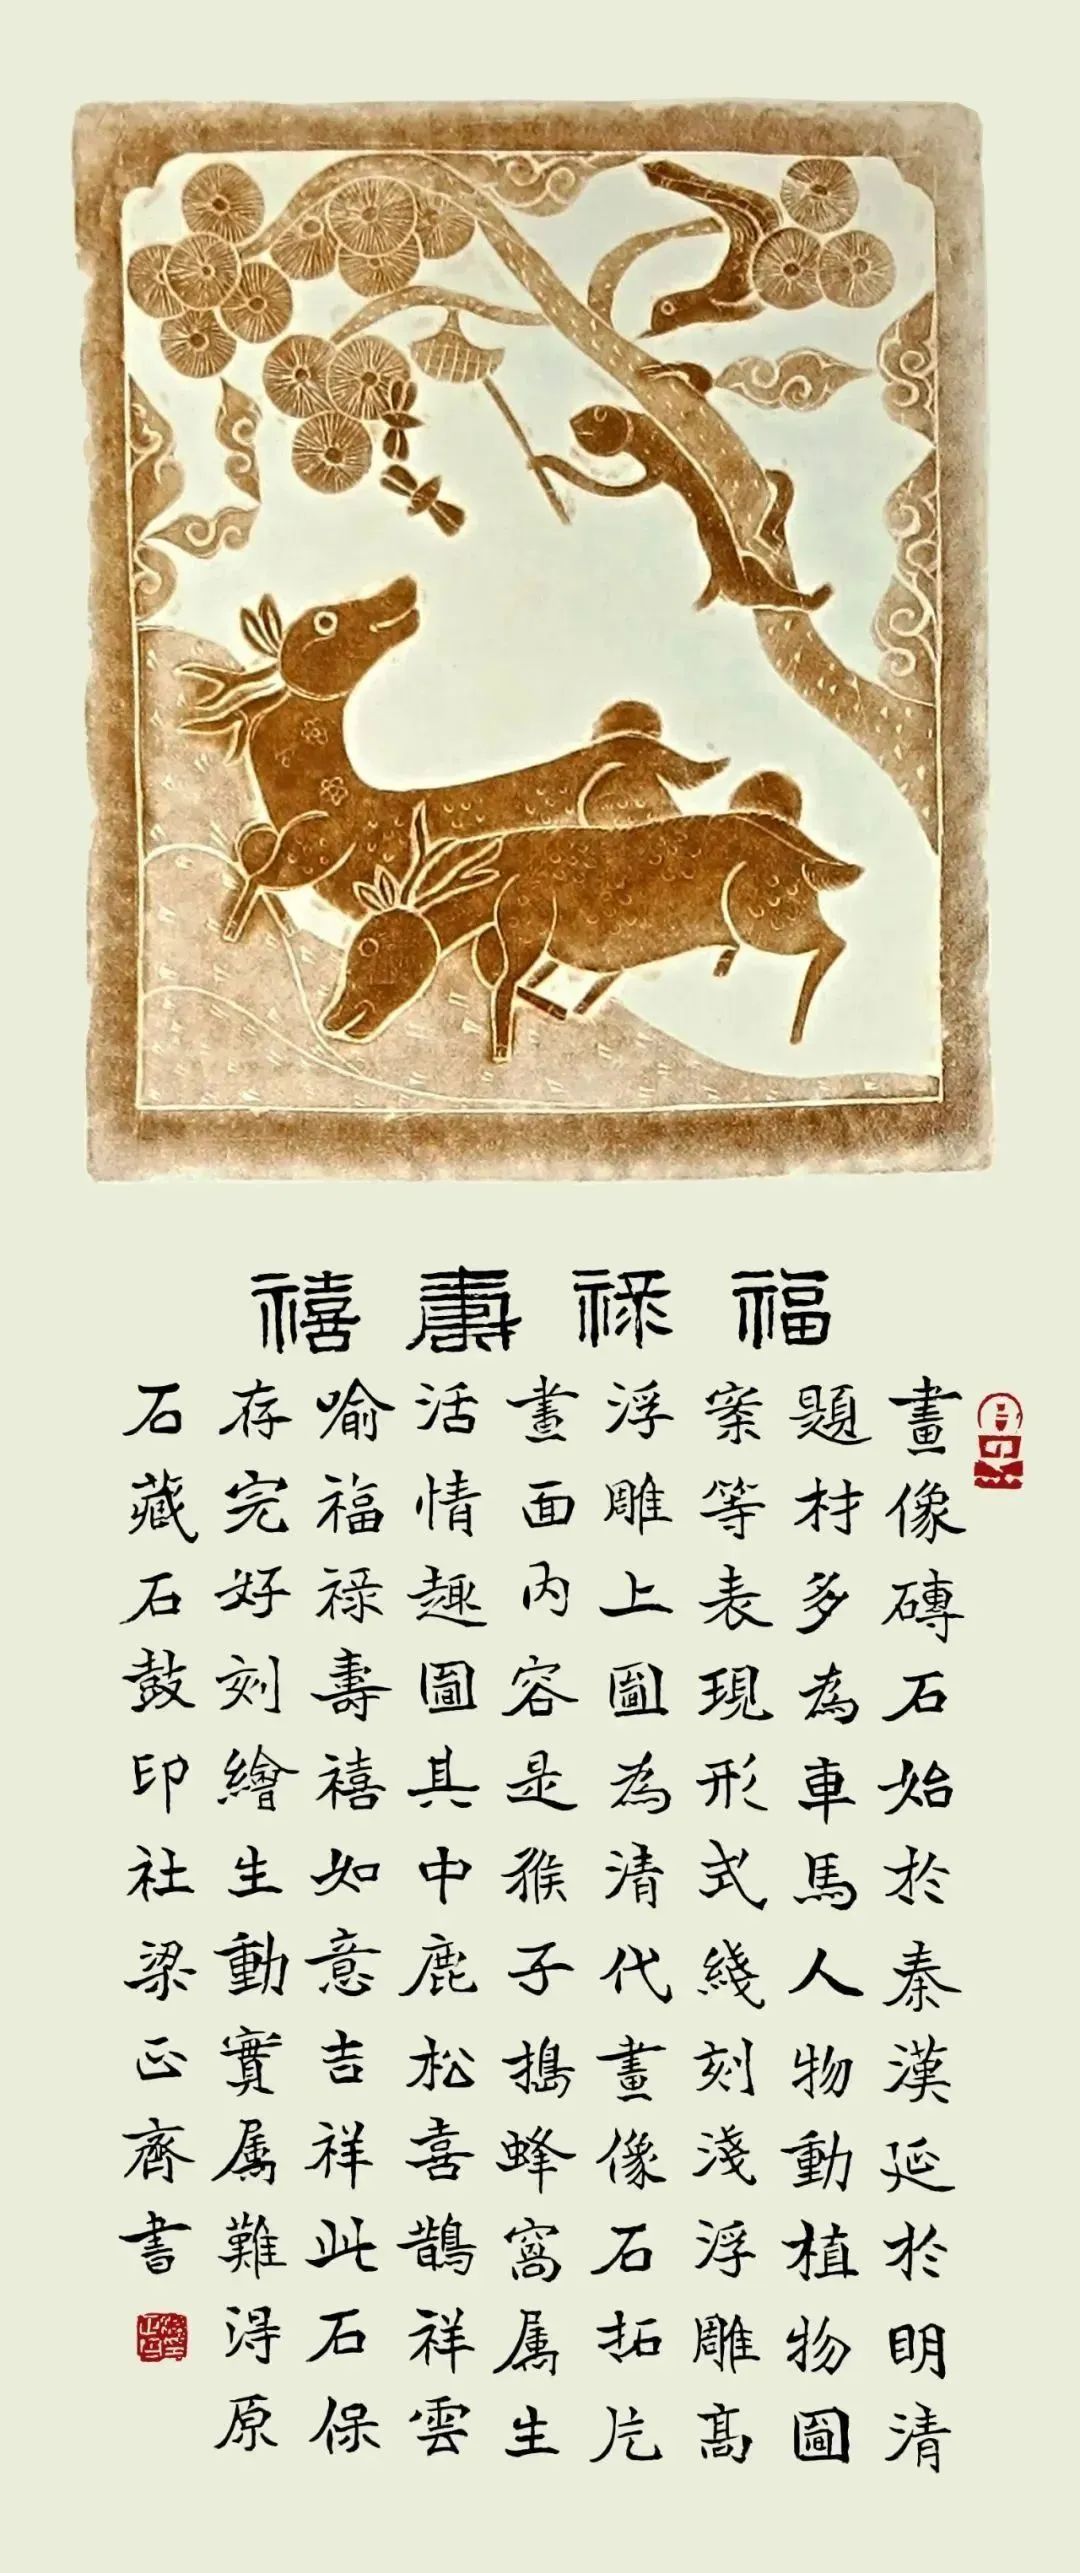 福祿壽禧
畫像磚石始於秦漢延於明清
題材多為車馬人物動植物圖
案等表現形式綫刻淺浮雕高
浮雕上圖為清代畫像石拓片
畫面內容是猴子搗蜂窩属生
活情趣圖其中鹿松喜鵲祥雲
喻福祿壽禧如意吉祥此石保
存完好刻繪生動實属難淂原
石藏石鼓印社梁正齊書